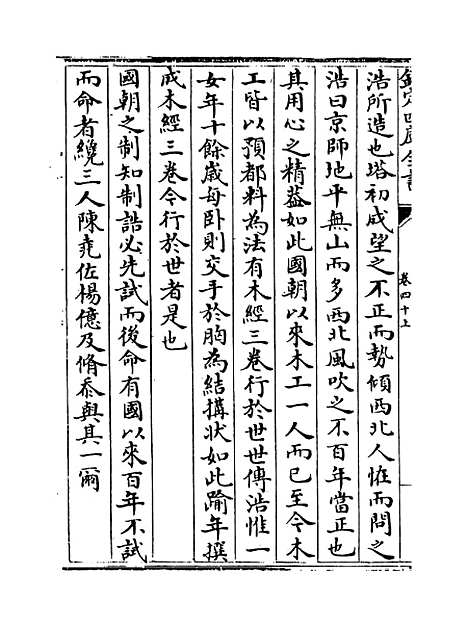 欽定四庫全書
卷四十上
浩所造也塔初成望之不正而勢傾西北人恠而問之
浩曰京師地平無山而多西北風吹之不百年當正也
其用心之精葢如此國朝以來木工一人而已至今木
工皆以預都料為法有木經三卷行於世世傳浩惟一
女年十餘歲每卧則交手於胸為結搆狀如此踰年撰
成木經三卷今行於世者是也
國朝之制知制誥必先試而後命有國以來百年不試
而命者纔三人陳堯佐楊億及脩忝與其一爾